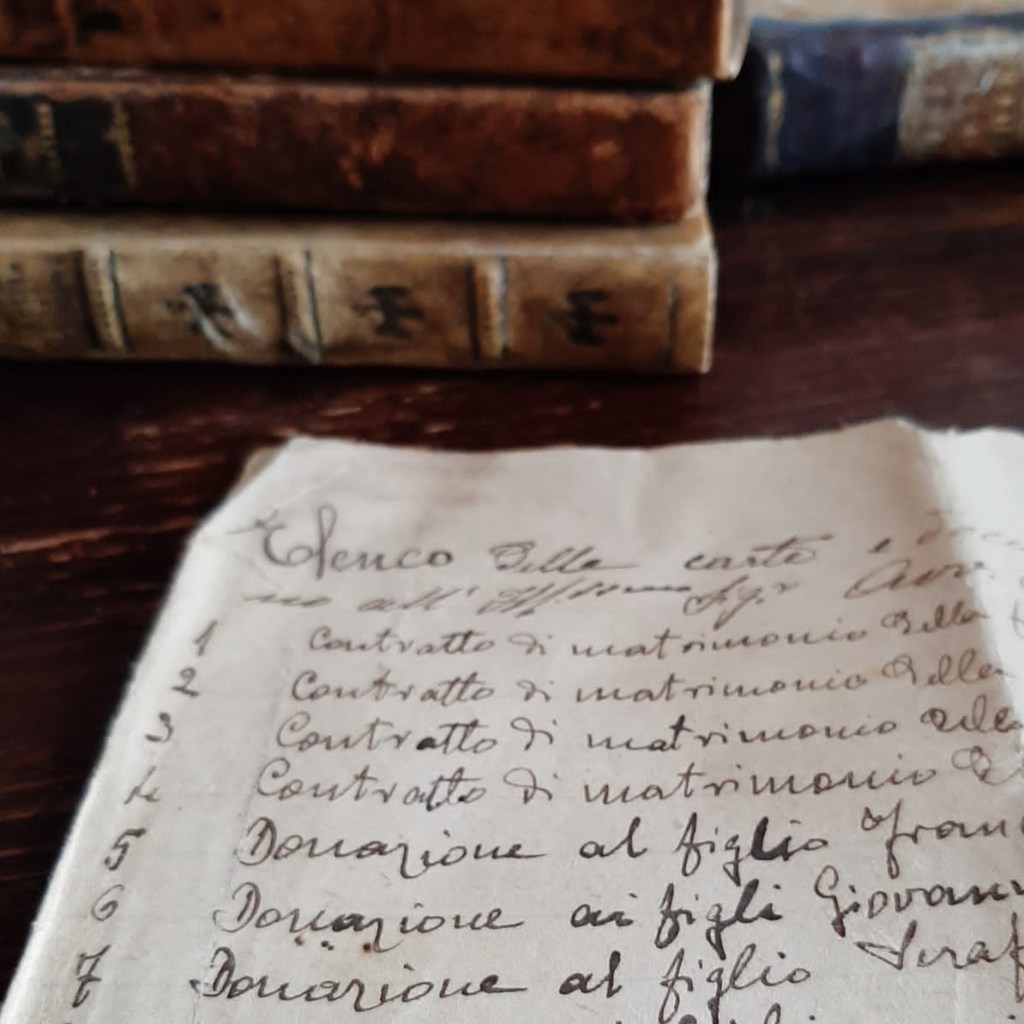 Elenco delle carte e
all' Sigr
1 Contratto di matrimonio della
2 Contratto di matrimonio della
3 Contratto di matrimonio
4 Contratto di matrimonio
5 Donazione al figlio Fran
6 Donazione ai figli Giovan
7 Donazione al figlio Seraf